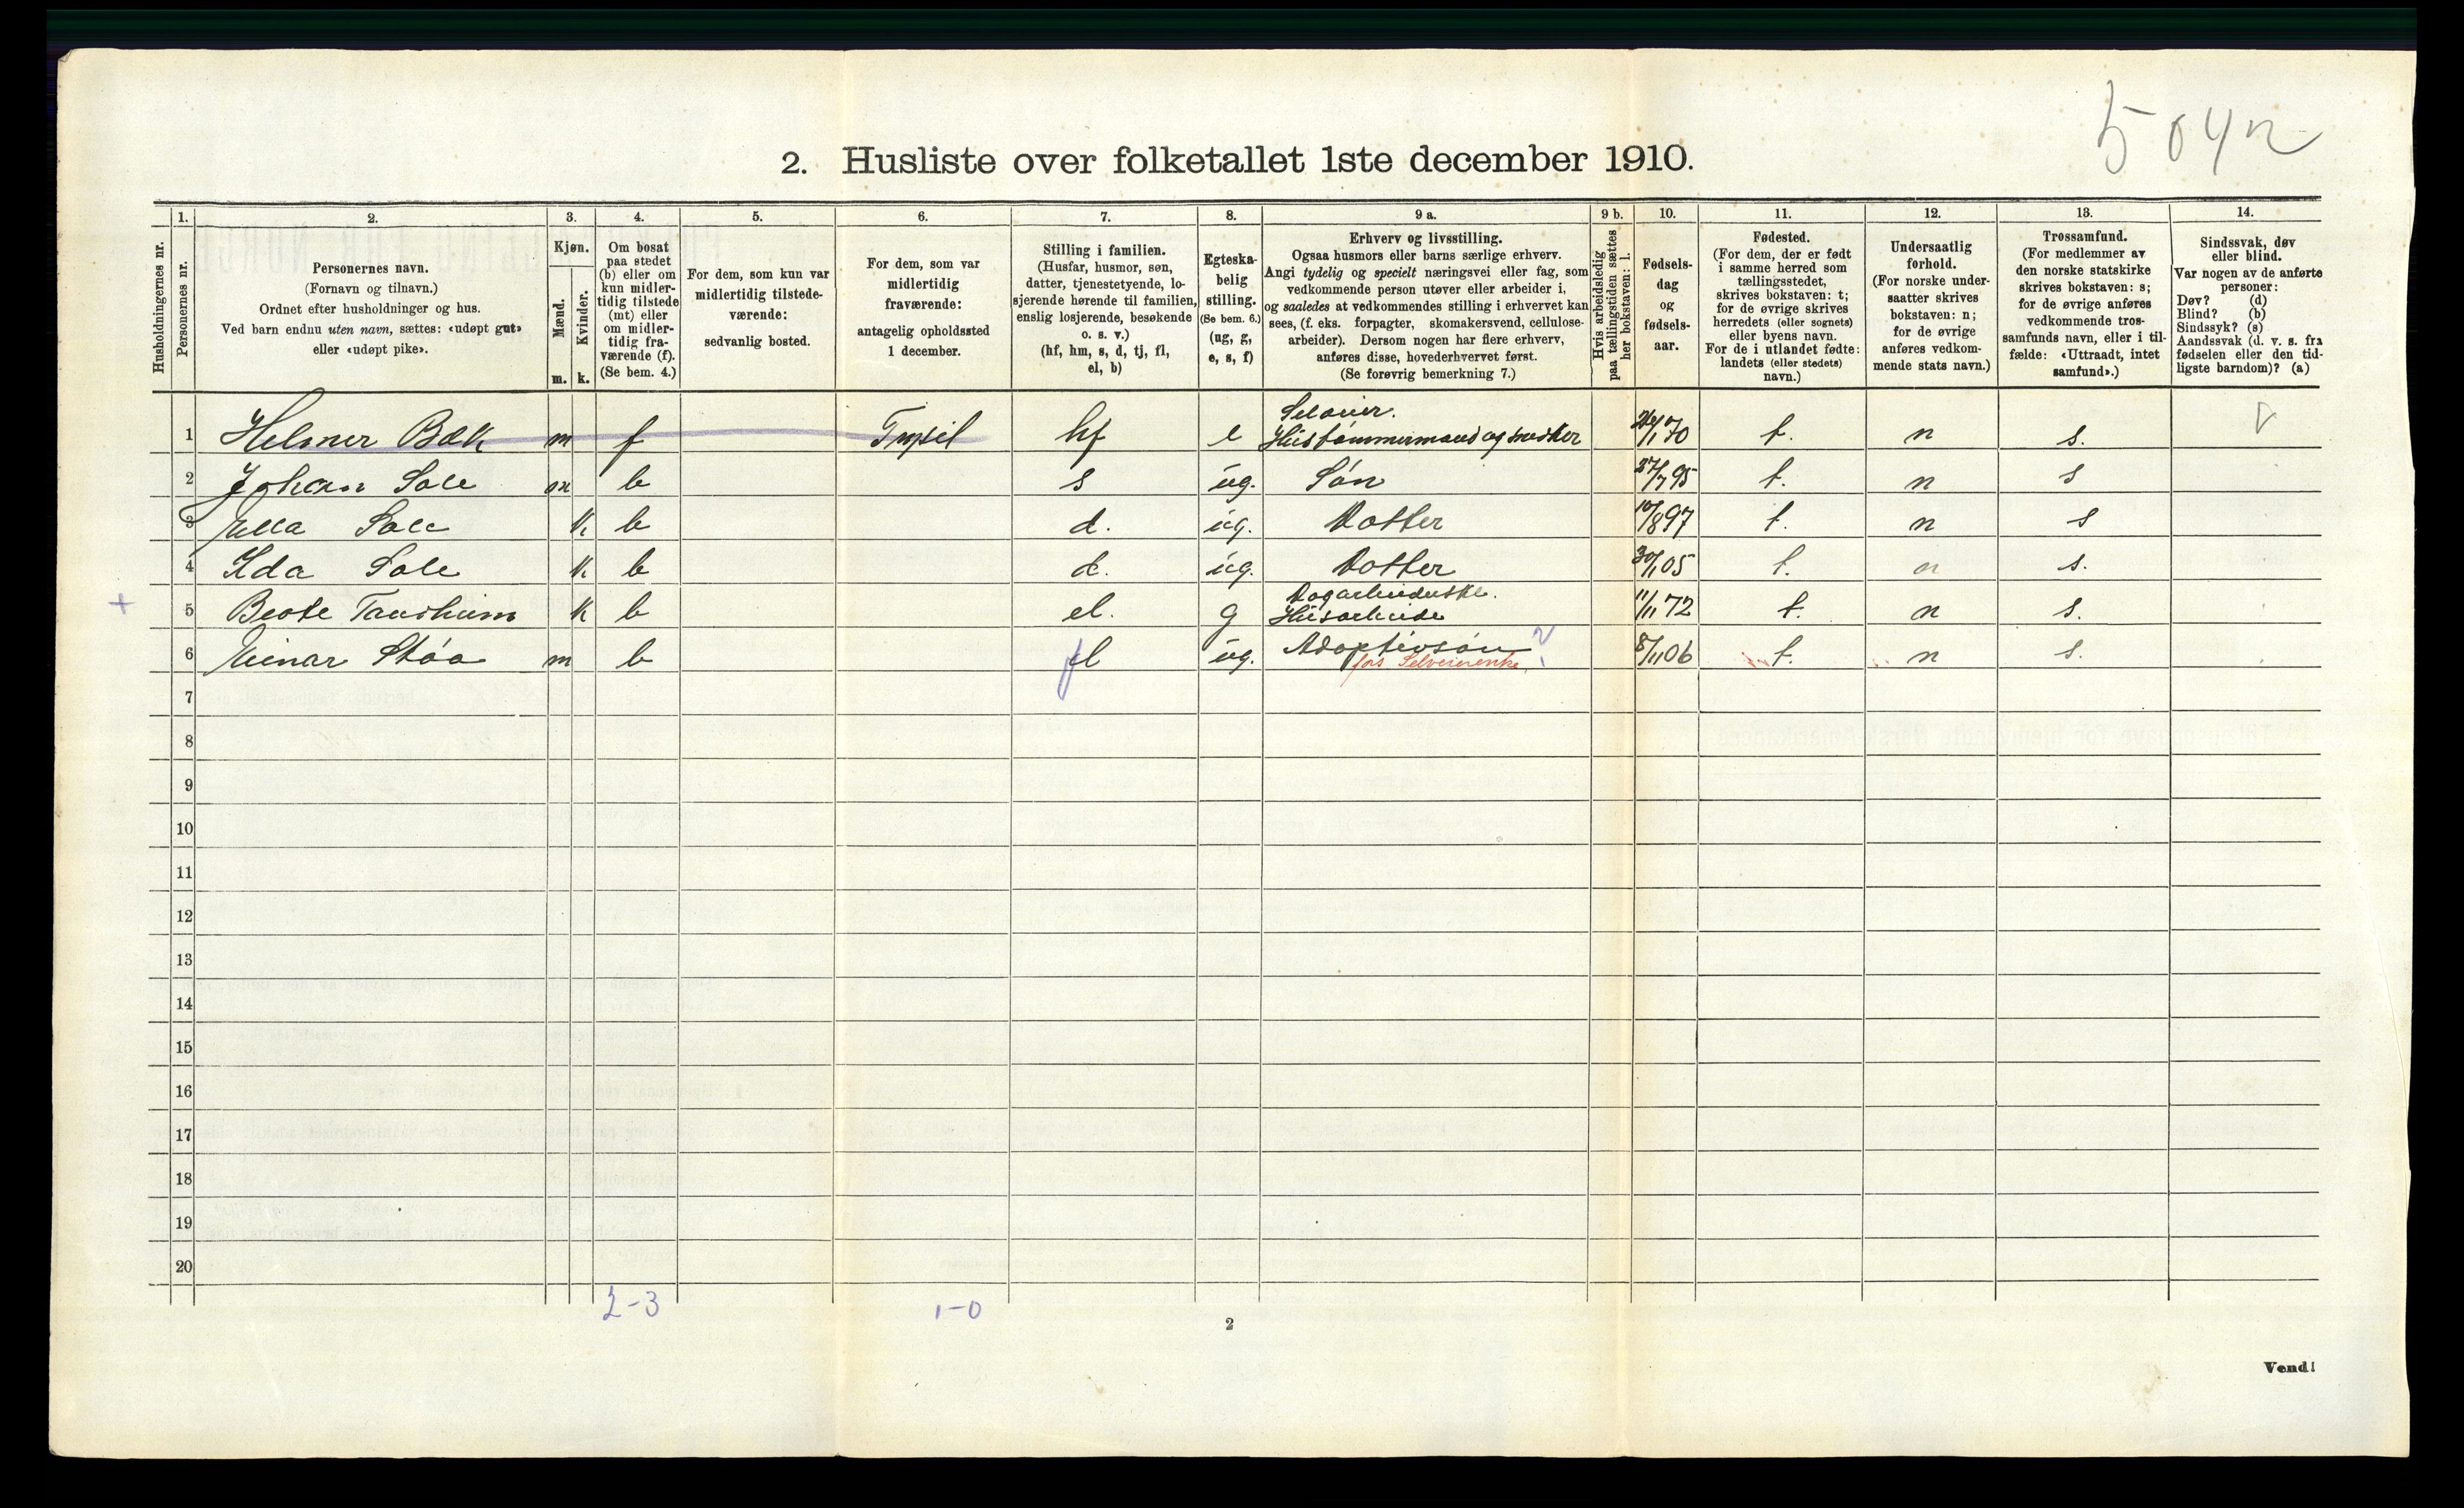 504n
2. Husliste over folketallet 1ste december 1910.
Husholdningernes nr.
1.
Personernes nr.
2.
Personernes navn.
(Fornavn og tilnavn.)
Ordnet efter husholdninger og hus.
Ved barn endnu uten navn, sættes: «udøpt gut»
eller «udøpt pike».
3.
Kjøn.
Mænd.
Kvinder.
m. k.
4.
Om bosat
paa stedet
(b) eller om
kun midler-
tidig tilstede
(mt) eller
om midler-
tidig fra-
værende (f).
(Se bem. 4.)
5.
For dem, som kun var
midlertidig tilstede-
værende:
sedvanlig bosted.
6.
For dem, som var
midlertidig
fraværende:
antagelig opholdssted
1 december.
7.
Stilling i familien.
(Husfar, husmor, søn,
datter, tjenestetyende, lo-
sjerende hørende til familien,
enslig losjerende, besøkende
o. s. v.)
(hf, hm, s, d, tj, fl,
el, b)
8.
Egteska-
belig
stilling.
(Se bem. 6.)
(ug, g,
e, s, f)
9 a.
Erhverv og livsstilling.
Ogsaa husmors eller barns særlige erhverv.
Angi tydelig og specielt næringsvei eller fag, som
vedkommende person utøver eller arbeider i,
og saaledes at vedkommendes stilling i erhvervet kan
sees, (f. eks. forpagter, skomakersvend, cellulose-
arbeider). Dersom nogen har flere erhverv,
anføres disse, hovederhvervet først.
(Se forøvrig bemerkning 7.)
9 b.
Hvis arbeidsledig
paa tællingstiden sættes
her bokstaven: l.
10.
Fødsels-
dag
og
fødsels-
aar.
11.
Fødested.
(For dem, der er født
i samme herred som
tællingsstedet,
skrives bokstaven: t;
for de øvrige skrives
herredets (eller sognets)
eller byens navn.
For de i utlandet fødte:
landets (eller stedets)
navn.)
12.
Undersaatlig
forhold.
(For norske under-
saatter skrives
bokstaven: n;
for de øvrige
anføres vedkom-
mende stats navn.)
13.
Trossamfund.
(For medlemmer av
den norske statskirke
skrives bokstaven: s;
for de øvrige anføres
vedkommende tros-
samfunds navn, eller i til-
fælde: «Uttraadt, intet
samfund».)
14.
Sindssvak, døv
eller blind.
Var nogen av de anførte
personer:
Døv? (d)
Blind? (b)
Sindssyk? (s)
Aandssvak (d. v. s. fra
fødselen eller den tid-
ligste barndom)? (a)
Seloeier.
1 Helmer Bæk m f Trysil hf e Hustømmermand og snedker 26/1 70 t. n s.
2 Johan Sole m b s ug. Søn 27/7 95 t. n s
3 Ella Sole k b d. ug. Datter 10/8 97 t. n s
4 Ida Sole k b d. ug. Datter 30/1 05 t. n s.
Dagarbeiderske.
5 Beate Tandheim k b el. g Husarbeide 11/11 72 t. n s.
6 Einar Støa m b fl ug. Adoptivsøn ? 8/11 06 t. n s.
fors Selveierenke
7
8
9
10
11
12
13
14
15
16
17
18
19
20
2-3
1-0
2
Vend!